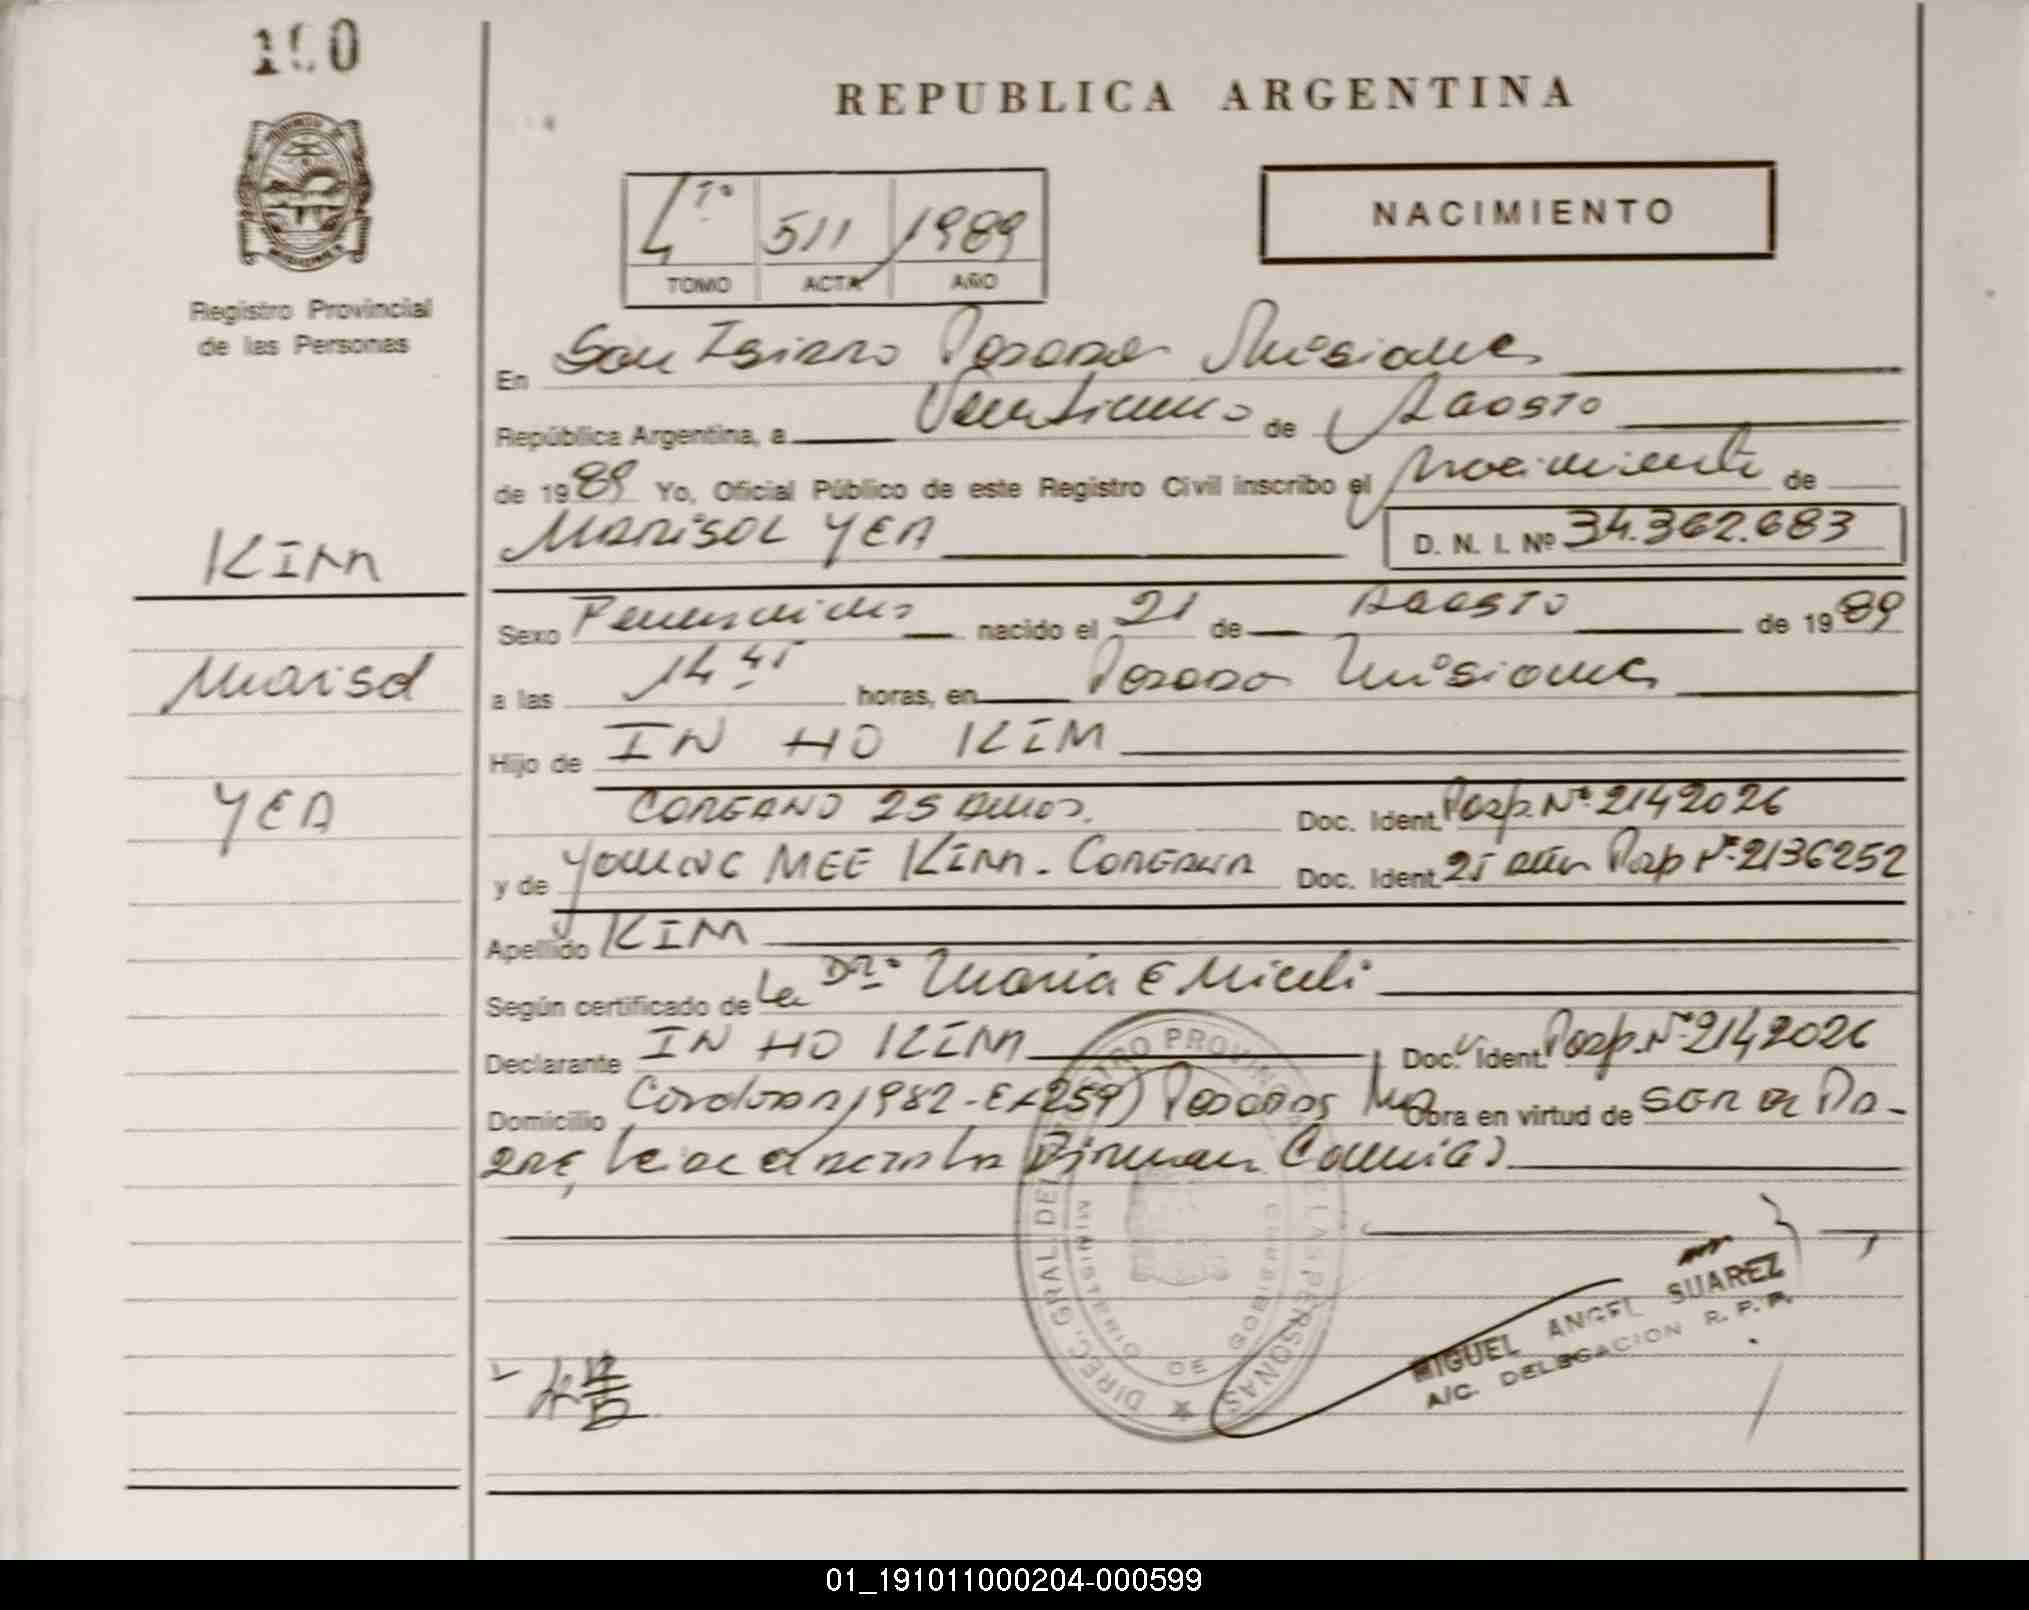 REPUBLICA ARGENTINA
Registro Provincial
de las Personas
NACIMIENTO
4 To 511 1989
TOMO ACTA AÑO
En San Isidro Posadas Misiones
República Argentina, a Veintiuno de Agosto
de 1989 Yo, Oficial Público de este Registro Civil inscribo el Nacimiento de
MARISOL YEA D. N. I. Nº 34.362.683
KIM
Marisol
YEA
Sexo Femenino nacido el 21 de AGOSTO de 1989
a las 14 45 horas, en Posadas Misiones
Hijo de IN HO KIM
COREANO 25 AÑOS. Doc. Ident. Pasp. Nº 2142026
y de YOUNG MEE KIM. COREANA Doc. Ident. 25 años Pasp Nº 2136252
Apellido KIM
Según certificado de La Dra. Maria E
Declarante IN HO KIM Doc. Ident. Pasp. Nº 2142026
Domicilio 1982 - Posadas Obra en virtud de SER el PA-
DRE, Leida el acta La Firman Conmigo
DIREC. GRAL. DEL REGISTRO PROVINCIAL DE LAS PERSONAS
MINISTERIO DE GOBIERNO
MIGUEL ANGEL SUAREZ
A/C. DELEGACION R. P. P.
01_191011000204-000599